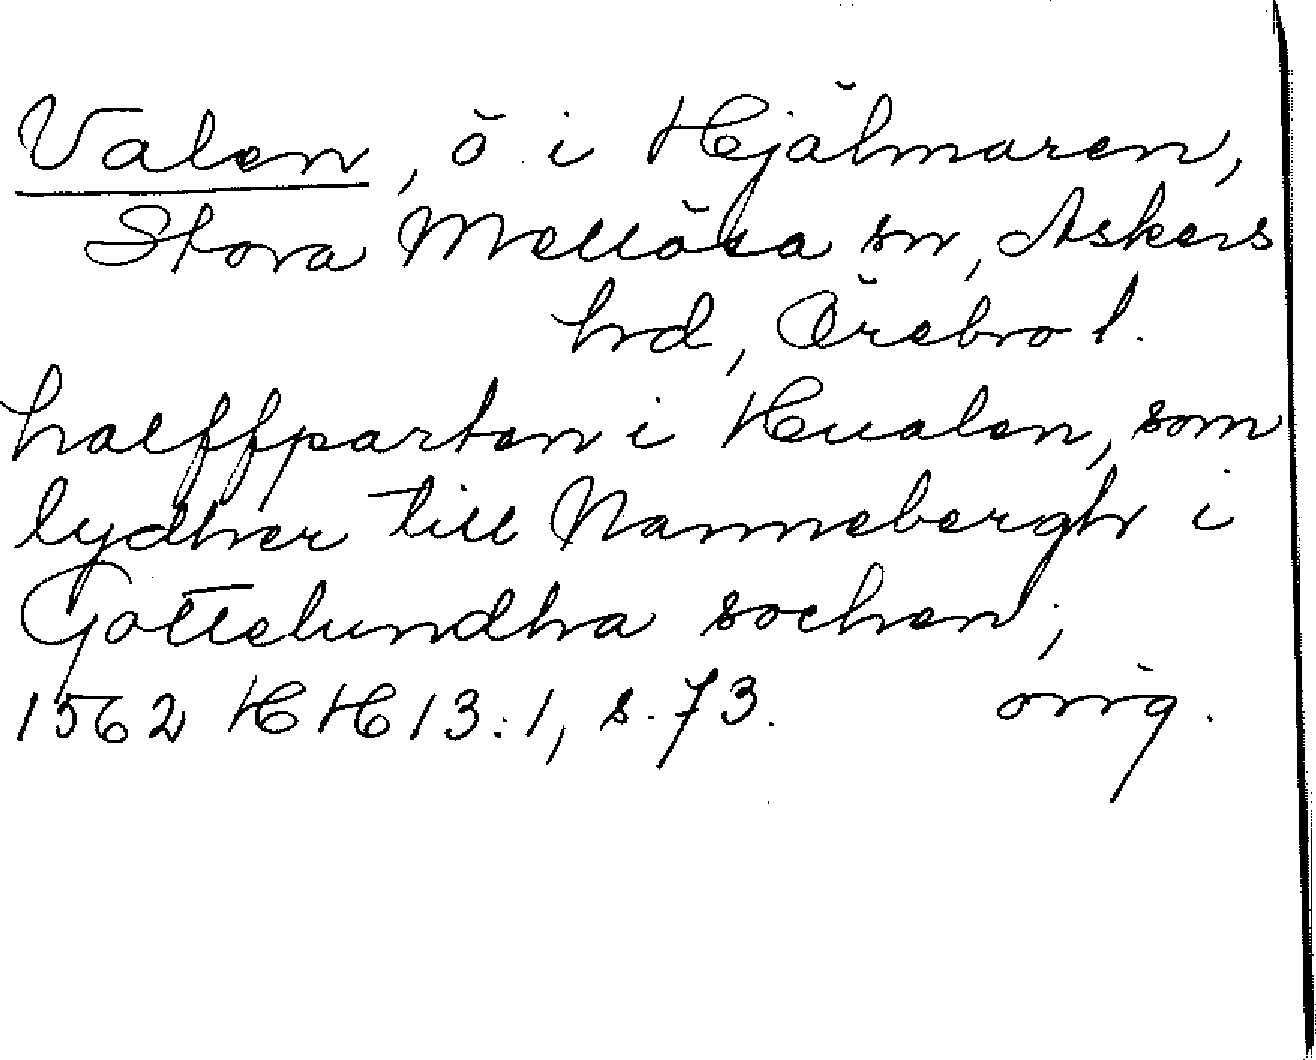 Valen, ö i Hjälmaren,
Stora Mellösa sn, Askers
hrd, Örebro l.
halffparten i Hualen, som
lydher till Nannebergh i
Gottelundha sochen,
1562 HH 13:1, s. 73. orig.